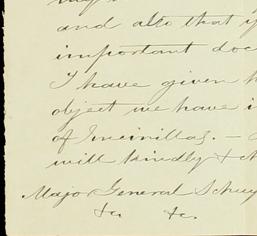 and also that y
important doc
I have given h
object we have i
of Encinillas. —
will kindly & 
Major General Schuy
&c &c.